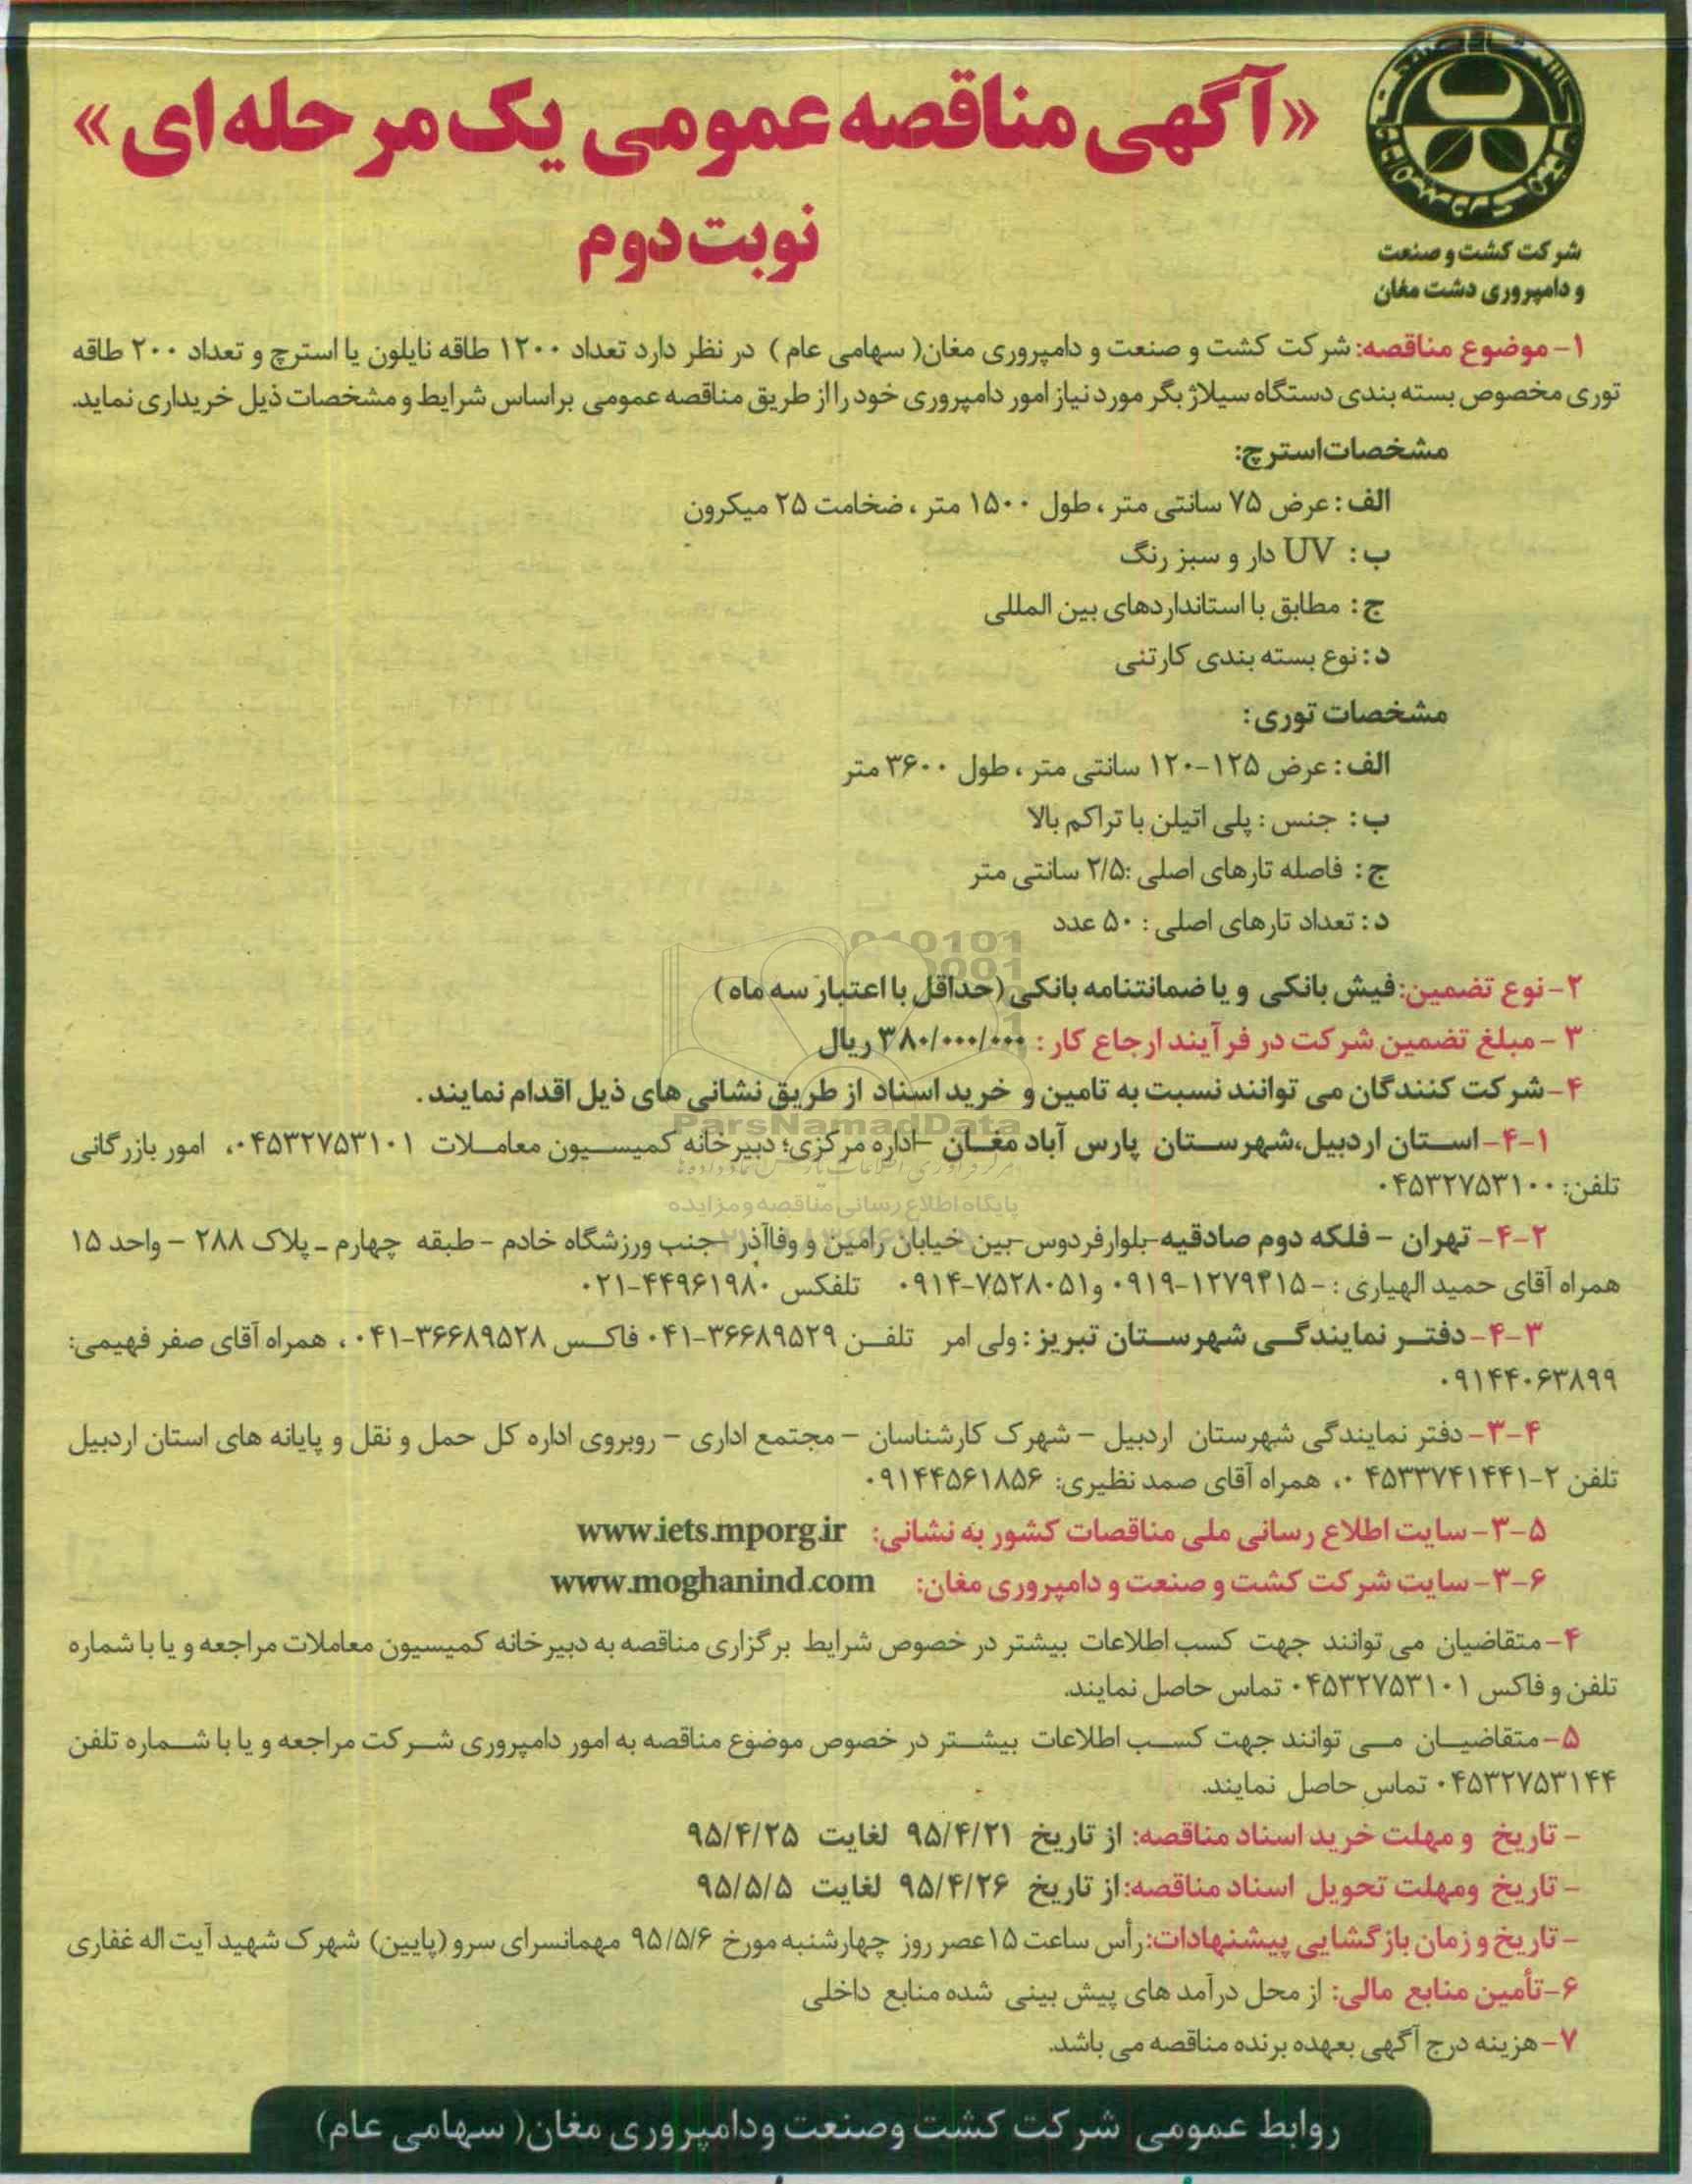 «آگهی مناقصه عمومی یک مرحله ای»
نوبت دوم
شرکت کشت و صنعت
و دامپروری دشت مغان
۱- موضوع مناقصه: شرکت کشت و صنعت و دامپروری مغان( سهامی عام ) در نظر دارد تعداد ۱۲۰۰ طاقه نایلون یا استرچ و تعداد ۲۰۰ طاقه
توری مخصوص بسته بندی دستگاه سیلاژ بگر مورد نیاز امور دامپروری خود را از طریق مناقصه عمومی براساس شرایط و مشخصات ذیل خریداری نماید.
مشخصات استرچ:
الف: عرض ۷۵ سانتی متر ، طول ۱۵۰۰ متر ، ضخامت ۲۵ میکرون
ب: UV دار و سبز رنگ
ج: مطابق با استانداردهای بین المللی
د: نوع بسته بندی کارتنی
مشخصات توری:
الف: عرض ۱۲۵-۱۲۰ سانتی متر ، طول ۳۶۰۰ متر
ب: جنس : پلی اتیلن با تراکم بالا
ج: فاصله تارهای اصلی :۲/۵ سانتی متر
د: تعداد تارهای اصلی : ۵۰ عدد
۲- نوع تضمین: فیش بانکی و یا ضمانتنامه بانکی (حداقل با اعتبار سه ماه)
۳- مبلغ تضمین شرکت در فرآیند ارجاع کار : ۳۸۰/۰۰۰/۰۰۰ ریال
۴- شرکت کنندگان می توانند نسبت به تامین و خرید اسناد از طریق نشانی های ذیل اقدام نمایند .
ParsNamadData
۴-۱- استان اردبیل،شهرستان پارس آباد مغان -اداره مرکزی؛ دبیرخانه کمیسیون معاملات ۰۴۵۳۲۷۵۳۱۰۱، امور بازرگانی
تلفن: ۰۴۵۳۲۷۵۳۱۰۰
پایگاه اطلاع رسانی مناقصه و مزایده
۴-۲- تهران - فلکه دوم صادقیه-بلوارفردوس-بین خیابان رامین و وفاآذر -جنب ورزشگاه خادم - طبقه چهارم - پلاک ۲۸۸ - واحد ۱۵
همراه آقای حمید الهیاری : -۰۹۱۹-۱۲۷۹۳۱۵ و۰۹۱۴-۷۵۲۸۰۵۱ تلفکس ۰۲۱-۴۴۹۶۱۹۸۰
۴-۳- دفتر نمایندگی شهرستان تبریز : ولی امر تلفن ۰۴۱-۳۶۶۸۹۵۲۹ فاکس ۰۴۱-۳۶۶۸۹۵۲۸ ، همراه آقای صفر فهیمی:
۰۹۱۴۴۰۶۳۸۹۹
۳-۴- دفتر نمایندگی شهرستان اردبیل - شهرک کارشناسان - مجتمع اداری - روبروی اداره کل حمل و نقل و پایانه های استان اردبیل
تلفن ۲-۰۴۵۳۳۷۴۱۴۴۱، همراه آقای صمد نظیری: ۰۹۱۴۴۵۶۱۸۵۶
۳-۵- سایت اطلاع رسانی ملی مناقصات کشور به نشانی: www.iets.mporg.ir
۳-۶- سایت شرکت کشت و صنعت و دامپروری مغان: www.moghanind.com
۴- متقاضیان می توانند جهت کسب اطلاعات بیشتر در خصوص شرایط برگزاری مناقصه به دبیرخانه کمیسیون معاملات مراجعه و یا با شماره
تلفن و فاکس ۰۴۵۳۲۷۵۳۱۰۱ تماس حاصل نمایند.
۵- متقاضیان می توانند جهت کسب اطلاعات بیشتر در خصوص موضوع مناقصه به امور دامپروری شرکت مراجعه و یا با شماره تلفن
۰۴۵۳۲۷۵۳۱۴۴ تماس حاصل نمایند.
- تاریخ و مهلت خرید اسناد مناقصه: از تاریخ ۹۵/۴/۲۱ لغایت ۹۵/۴/۲۵
- تاریخ ومهلت تحویل اسناد مناقصه: از تاریخ ۹۵/۴/۲۶ لغایت ۹۵/۵/۵
- تاریخ و زمان بازگشایی پیشنهادات: رأس ساعت ۱۵عصر روز چهارشنبه مورخ ۹۵/۵/۶ مهمانسرای سرو (پایین) شهرک شهید آیت اله غفاری
۶-تأمین منابع مالی: از محل درآمدهای پیش بینی شده منابع داخلی
۷- هزینه درج آگهی بعهده برنده مناقصه می باشد.
روابط عمومی شرکت کشت وصنعت ودامپروری مغان( سهامی عام)